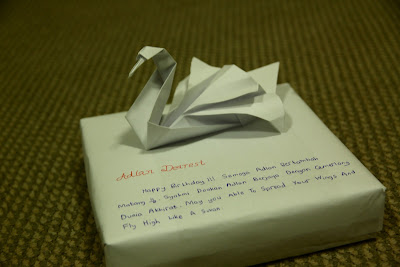 Adlan Dearest
Happy Birthday!!! Semoga Adlan Bertambah
Matang & Syukur Doakan Adlan Berjaya Dengan Cemerlang
Dunia Akhirat. May you Able To Spread Your Wings And
Fly High Like A Swan